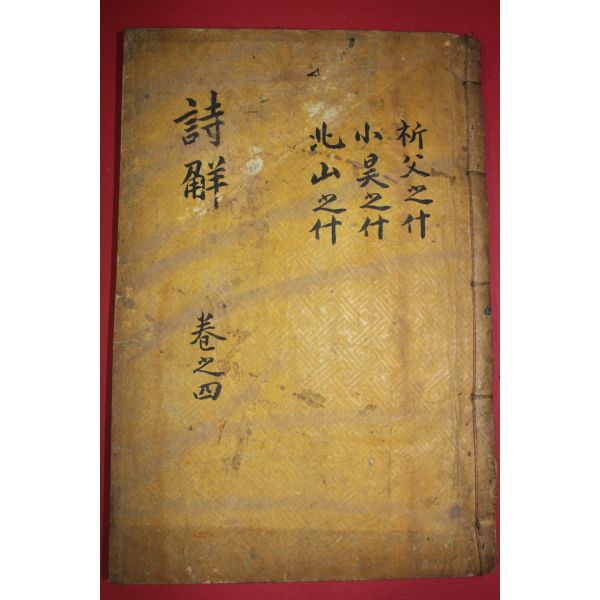 祈父之什
小昊之什
北山之什
詩觧
卷之四